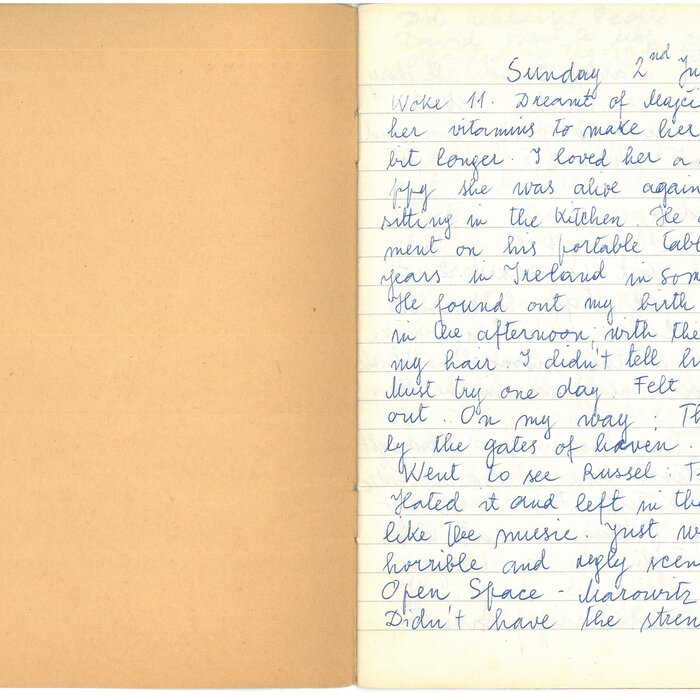 Sunday 2nd Ju
Woke 11. Dreamt of Majci
her vitamins to make her
bit longer. I loved her a
ppy she was alive again
sitting in the kitchen. He
ment on his portable tab
years in Ireland in som
He found out my birth
in the afternoon, with the
my hair. I didn't tell h
Must try one day. Felt
out. On my way: Th
ly the gates of heaven.
Went to see Russel: T
Hated it and left in the
like the music. Just w
horrible and ugly scen
Open Space - Marowitz
Didn't have the stren